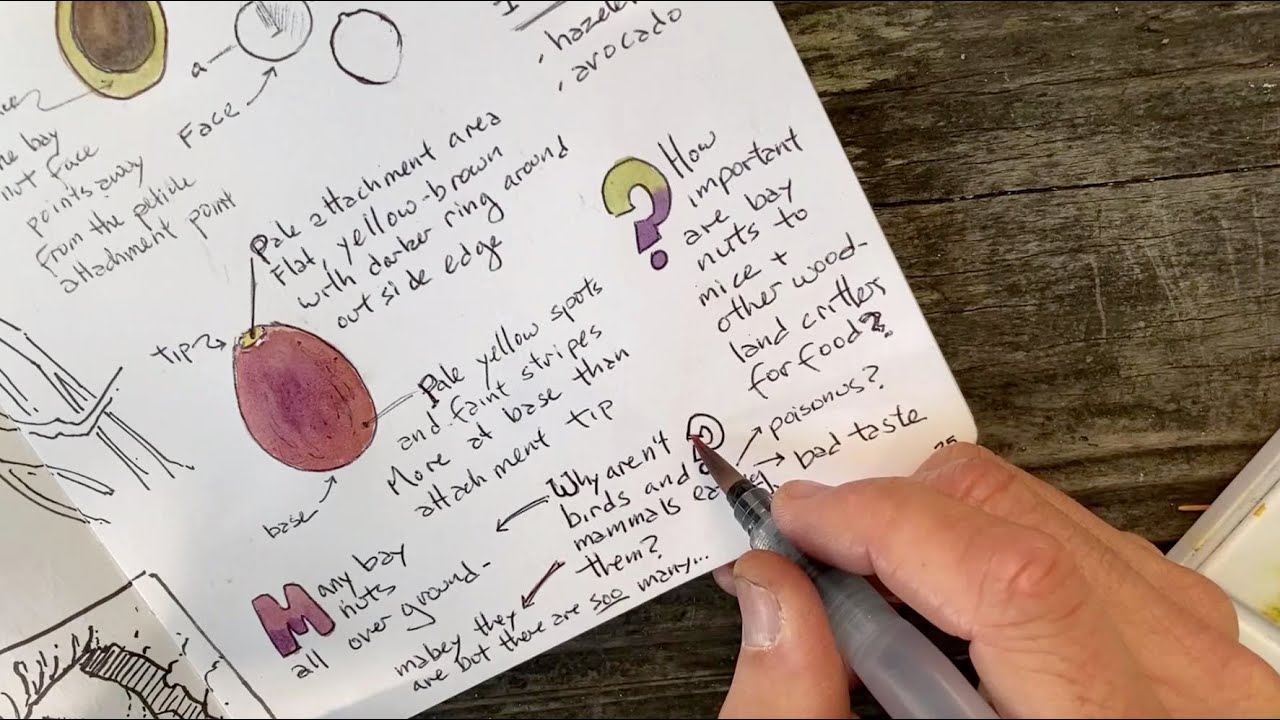 hazel
avocado
a
Face
he bay
nut face
points away
from the peticle
attachment point
Pale attachment area
Flat, yellow-brown
with darker ring around
out side edge
tip
Pale yellow spots
and faint stripes
More at base than
attachment tip
base
?
How
important
are bay
nuts to
mice +
other wood-
land critters
for food?
?
Why aren't
birds and
mammals
them?
poisonus?
bad taste
Many bay
nuts
all over ground-
mabey they
are but there are soo many...